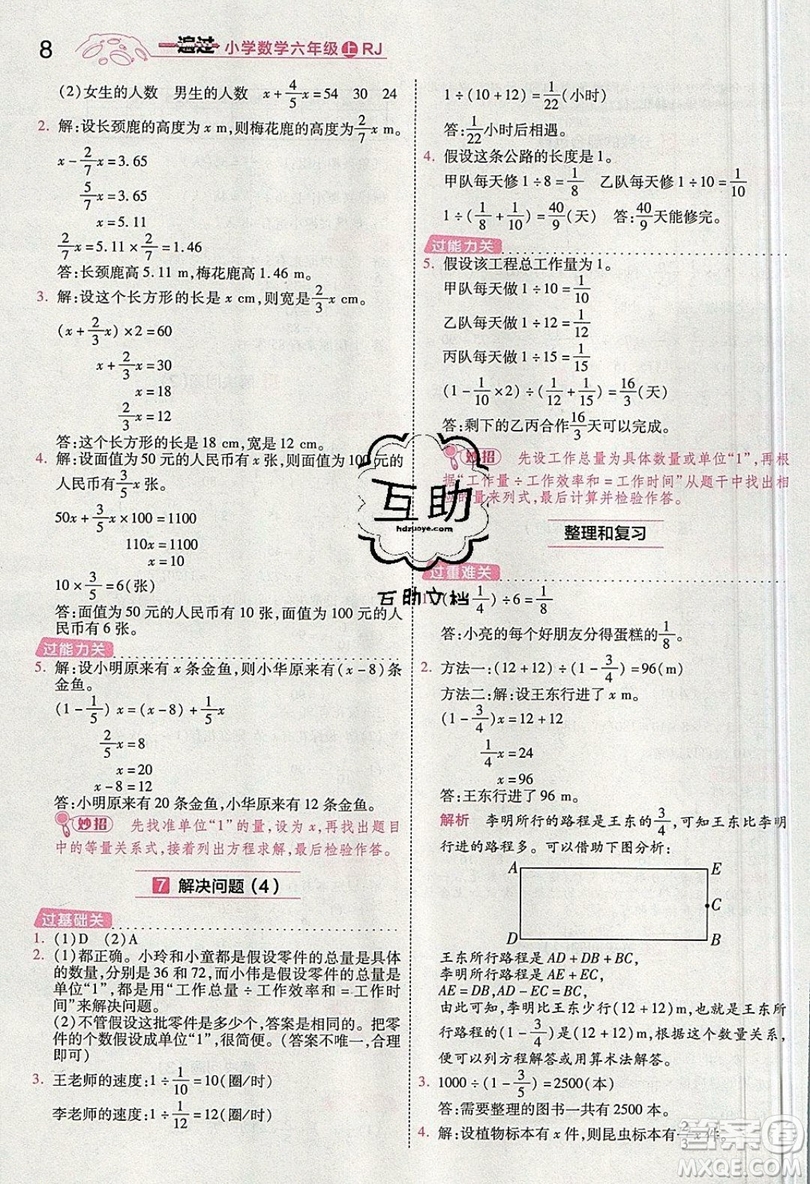 8 一遍过 小学数学六年级 上 RJ
(2)女生的人数 男生的人数 x+4/5x=54 30 24
2. 解:设长颈鹿的高度为 x m,则梅花鹿的高度为2/7x m。
x-2/7x=3.65
5/7x=3.65
x=5.11
2/7x=5.11×2/7=1.46
答:长颈鹿高 5.11 m,梅花鹿高 1.46 m。
3. 解:设这个长方形的长是 x cm,则宽是2/3x cm。
(x+2/3x)×2=60
x+2/3x=30
x=18
2/3x=12
答:这个长方形的长是 18 cm,宽是 12 cm。
4. 解:设面值为 50 元的人民币有 x 张,则面值为 100 元的
人民币有3/5x 张。
50x+3/5x×100=1100
110x=1100
x=10
10×3/5=6(张)
答:面值为 50 元的人民币有 10 张,面值为 100 元的人
民币有 6 张。
过能力关
5. 解:设小明原来有 x 条金鱼,则小华原来有(x-8)条
金鱼。
(1-1/5)x=(x-8)+1/5x
2/5x=8
x=20
x-8=12
答:小明原来有 20 条金鱼,小华原来有 12 条金鱼。
妙招 先找准单位“1”的量,设为 x,再找出题目
中的等量关系式,接着列出方程求解,最后检验作答。
7 解决问题(4)
过基础关
1. (1)D (2)A
2. (1)都正确。小玲和小童都是假设零件的总量是具体
的数量,分别是 36 和 72,而小伟是假设零件的总量是单
位“1”,都是用“工作总量÷工作效率和=工作时
间”来解决问题。
(2)不管假设这批零件是多少个,答案是相同的。把零
件的个数假设成单位“1”,很简便。(答案不唯一,合理
即可)
3. 王老师的速度:1÷1/10=10(圈/时)
李老师的速度:1÷1/12=12(圈/时)
1÷(10+12)=1/22(小时)
答:1/22小时后相遇。
4. 假设这条公路的长度是 1。
甲队每天修 1÷8=1/8 乙队每天修 1÷10=1/10
1÷(1/8+1/10)=40/9(天) 答:40/9天能修完。
过能力关
5. 假设该工程总工作量为 1。
甲队每天实施 1÷10=1/10
乙队每天实施 1÷12=1/12
丙队每天实施 1÷15=1/15
(1-1/10×2)÷(1/12+1/15)=16/3(天)
答:剩下的乙丙合作16/3天可以完成。
妙招 先设工作总量为具体数量或单位“1”,再根
据“工作量÷工作效率和=工作时间”从题干中找出相
应的量来列式,最后计算并检验作答。
互助
hdzuoye.com
互助文档
整理和复习
过重难关
1. (1-1/4)÷6=1/8
答:小亮的每个好朋友分得蛋糕的1/8。
2. 方法一:(12+12)÷(1-3/4)=96(m)
方法二:解:设王东行进了 x m。
(1-3/4)x=12+12
1/4x=24
x=96
答:王东行进了 96 m。
解析 李明所行的路程是王东的3/4,可以知道王东比李明
行进的路程多。可以借助下图分析:
A E
C
D B
王东所行路程是 AD+DB+BC,
李明所行路程是 AE+EC,
AE=DB,AD=EC+BC,
由此可知,李明比王东少行(12+12)m,是王东所
行路程的(1-3/4),根据这个数量关系,
便可列方程解答或用算术法解答。
3. 1000÷(1-3/5)=2500(本)
答:需要整理的图书一共有 2500 本。
4. 解:设植物标本有 x 件,则昆虫标本有2/3x 件。
答案圈
MXQE.COM